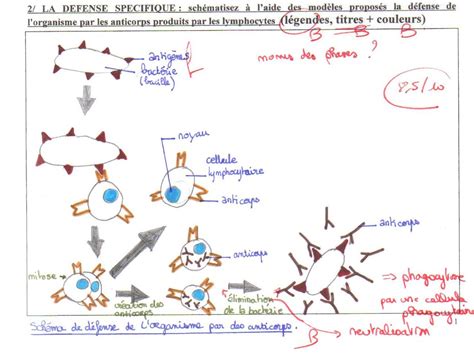 2/ LA DEFENSE SPECIFIQUE : schématisez à l'aide des modèles proposés la défense de
l'organisme par les anticorps produits par les lymphocytes (légendes, titres + couleurs)
B B B
antigènes
bactérie
(bacille)
noms des phases ?
8,5/10
noyau
cellule
lymphocytaire
anticorps
anticorps
anticorps
mitose
création des
anticorps
élimination
de la bactérie
=> phagocytose
par une cellule
phagocytaire
Schéma de défense de l'organisme par des anticorps.
B
neutralisation